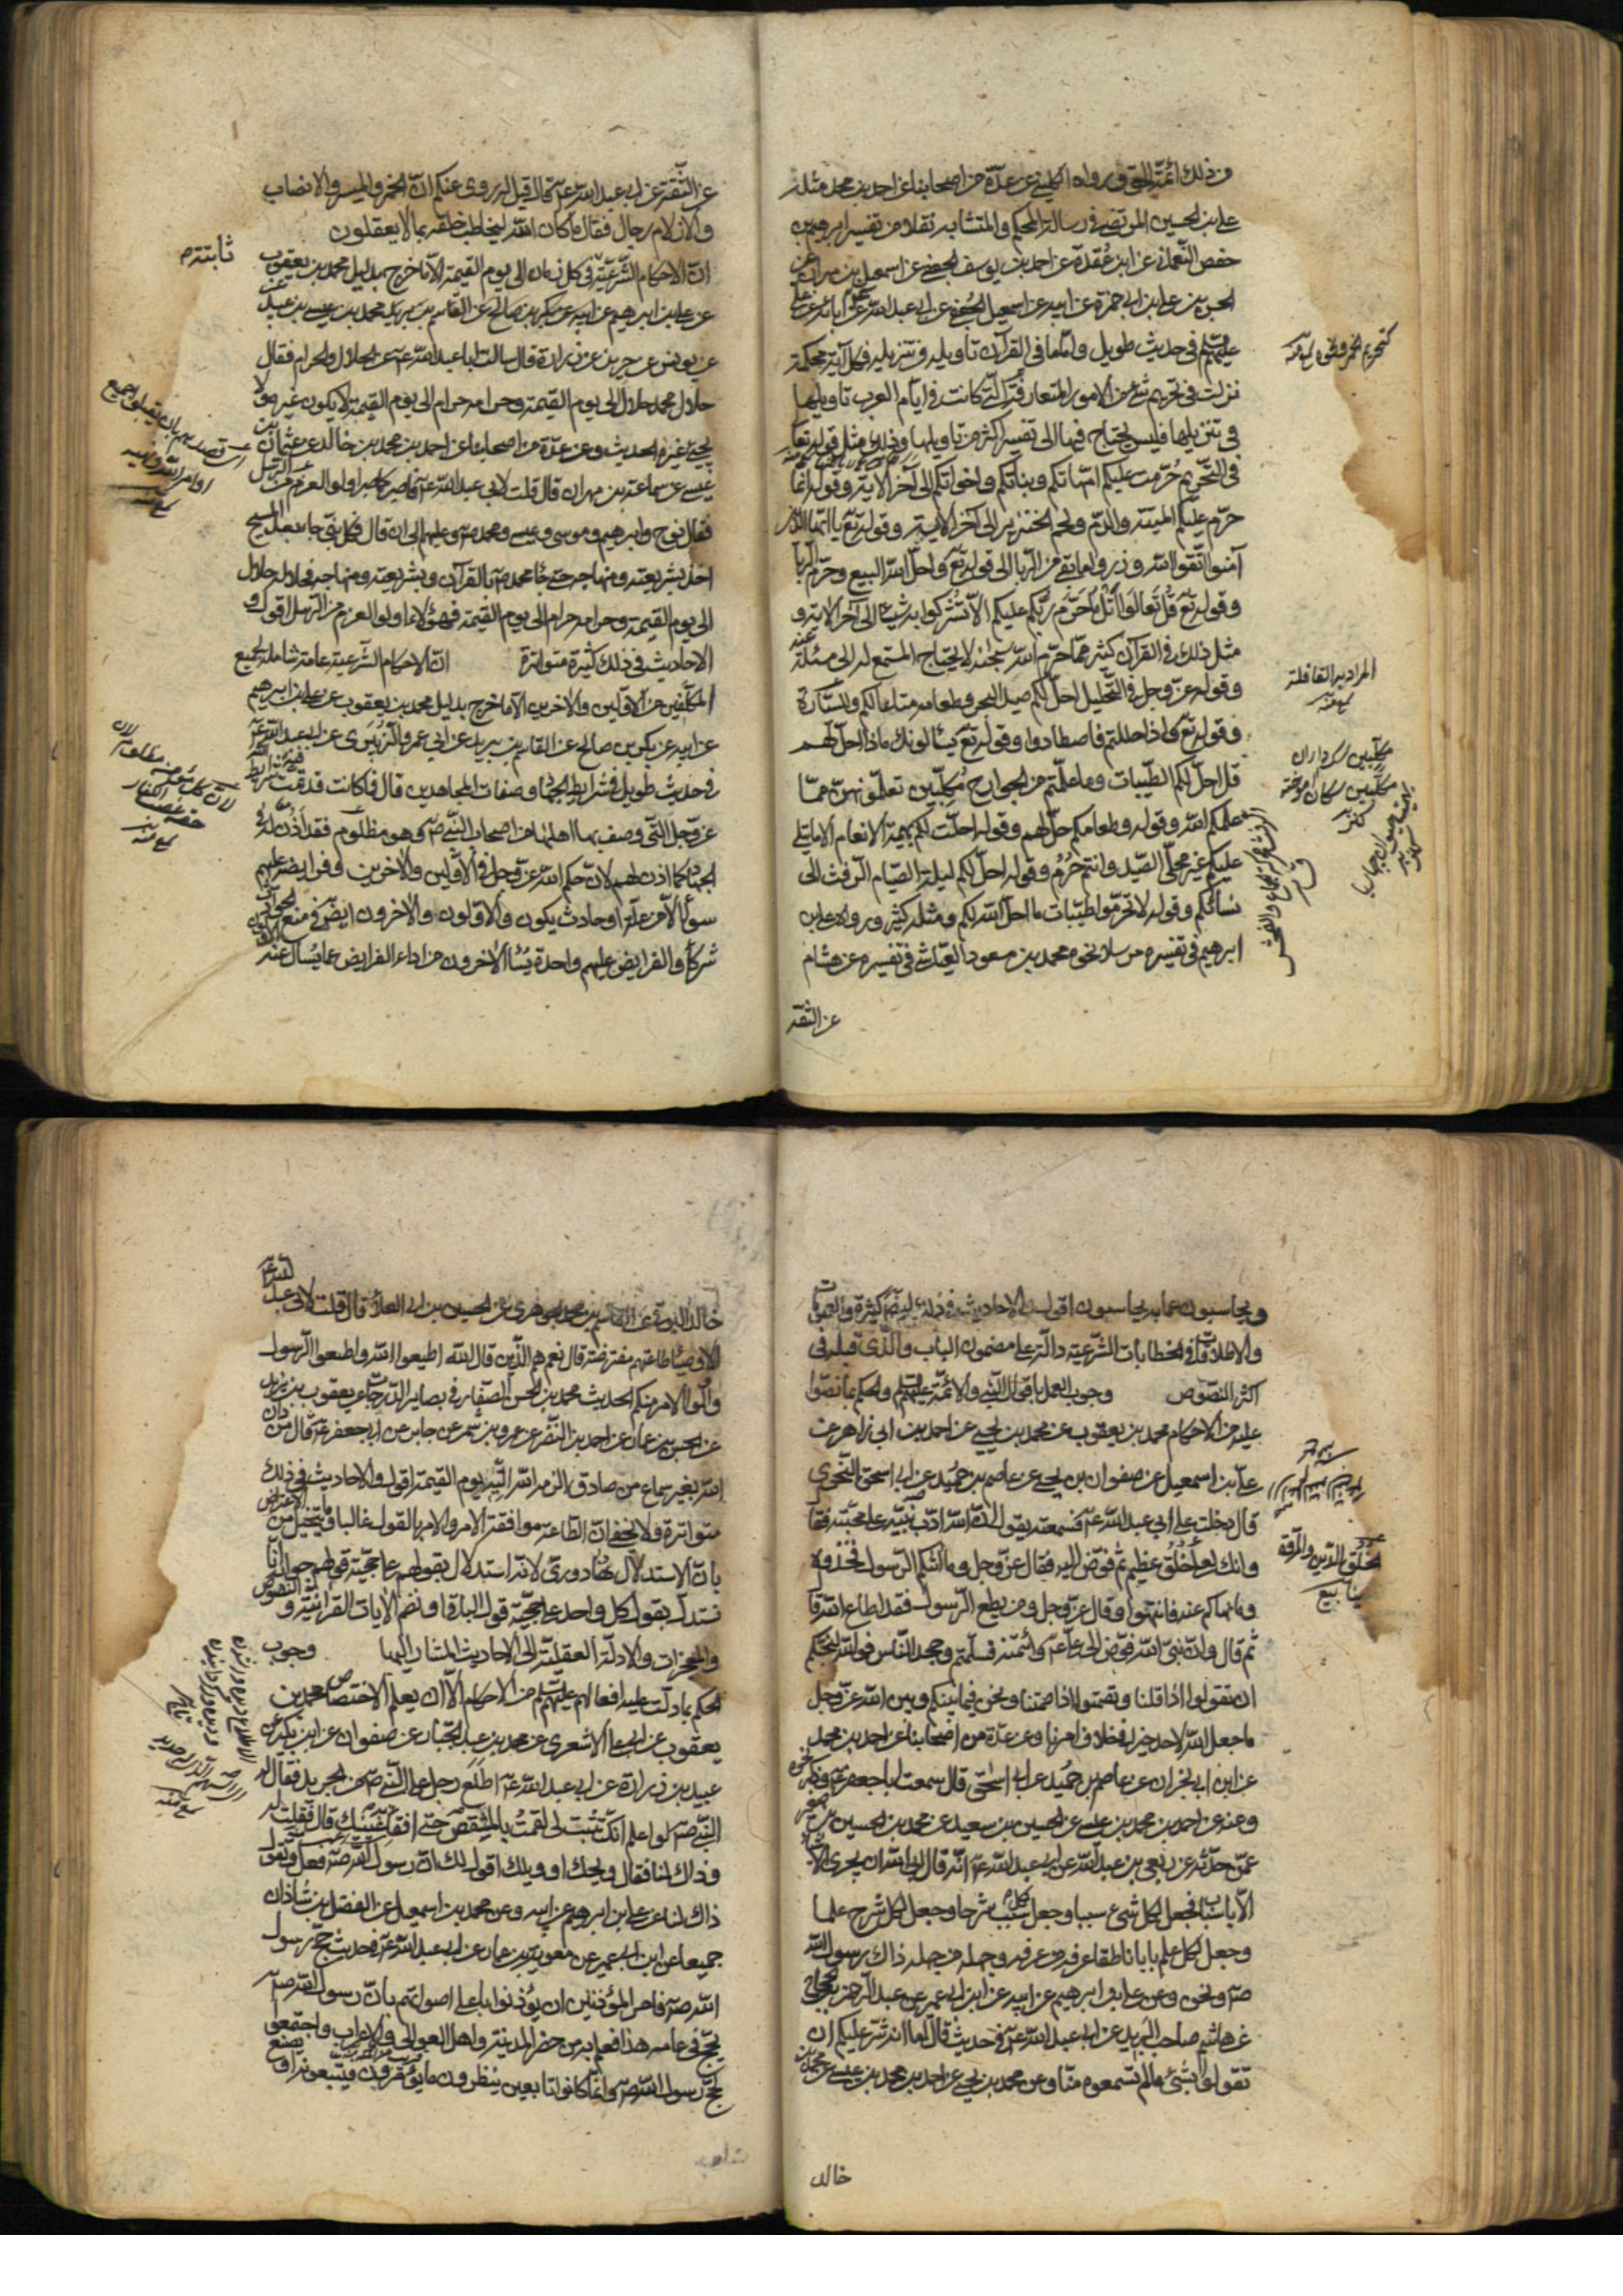 وذلك ائمّة الحق ورواه الكليني عن عدّة من اصحابنا عن احمد بن محمد مثله
علي بن الحسين المرتضى في رسالة المحكم والمتشابه نقلا من تفسير
حفص النعماني عن ابن عُقدة عن احمد بن يوسف الجعفي عن اسمعيل بن مهران عن
الحسن بن علي بن ابي حمزة عن ابيه عن اسمعيل عن ابي عبد الله عن ابائه عن علي
عليهم السلم في حديث طويل وامّا ما في القرآن تاويله في تنزيله فكل آية محكمة
نزلت في تحريم شئ من الامور المتعارفة الّتي كانت في ايّام العرب تاويلها
في تنزيلها فليس يحتاج فيها الى تفسير اكثر من تاويلها وذلك مثل قوله تعا
في التّحريم حُرّمت عليكم امّهاتكم وبناتكم واخواتكم الى آخر الاية وقوله انّما
حرّم عليكم الميتة والدّم ولحم الخنزير الى آخر الاية وقوله تع يا ايّها الّذين
آمنوا اتّقوا الله وذروا ما بقي من الرّبا الى قوله تع واحلّ الله البيع وحرّم الرّبا
وقوله تع قُل تَعالَوا اَتْلُ ما حَرّم ربّكم عليكم الاّ تُشركوا به شيئا الى آخر الاية و
مثل ذلك في القرآن كثير ممّا حرّم الله سبحنه لا يحتاج المستمع له الى مسئلة عنه
وقوله عزّ وجل في التّحليل احلّ لكم صيد البحر وطعامه متاعا لكم وللسّيّارة
وقوله تع واذا حللتم فاصطادوا وقوله تع يسئلونك ماذا احلّ لهم
قل احلّ لكم الطّيبات وما علّمتم من الجوارح مُكلِّبين تعلّمونهنّ ممّا
علّمكم الله وقوله وطعامكم حلّ لهم وقوله احلّت لكم بهيمة الانعام الا ما يتلى
عليكم غير محلّي الصّيد وانتم حُرُم وقوله احلّ لكم ليلة الصّيام الرّفث الى
نسائكم وقوله لا تحرّموا طيّبات ما احلّ الله لكم ومثله كثير ورواه علي بن
ابرهيم في تفسيره مرسلا نحوه محمد بن مسعود العيّاشي في تفسيره عن هشام
عن الثقة
المراد به القافلة
عن الثّقة عن ابي عبد الله عَ قال قيل له روى عنكم انّ الخمر والميسر والانصاب
والازلام رجال فقال ما كان الله ليخاطب خلقه بما لا يعقلون
انّ الاحكام الشّرعيّة في كل زمان الى يوم القيمة الاّ ما خرج بدليل محمد بن يعقوب
ثابتة
عن يونس عن حريز عن زرارة قال سالت ابا عبد الله عَ عن الحلال والحرام فقال
حلال محمد حلال الى يوم القيمة وحرامه حرام الى يوم القيمة لا يكون غيره ولا
يجئ غيره الحديث وعن عدّة من اصحابنا عن احمد بن محمد بن خالد عن عثمان بن
عيسى عن سماعة بن مهران قال قلت لابي عبد الله عَ فاصبر كما صبر اولو العزم من الرّسل
فقال نوح وابرهيم وموسى وعيسى ومحمد صَ وعليهم الى ان قال فكل نبي جاء بعد المسيح
اخذ بشريعته ومنهاجه حتّى جاء محمد صَ بالقرآن وبشريعته ومنهاجه فحلاله حلال
الى يوم القيمة وحرامه حرام الى يوم القيمة فهؤلاء اولو العزم من الرّسل اقول و
الاحاديث في ذلك كثيرة متواترة انّ الاحكام الشّرعية عامة شاملة لجميع
المكلّفين من الاوّلين والاخرين الاّ ما خرج بدليل محمد بن يعقوب عن علي بن ابرهيم
عن ابيه عن بكر بن صالح عن القاسم بن بريد عن ابي عمرو الزّبيري عن ابي عبد الله عَ
في حديث طويل في شرايط الجهاد وصفات المجاهدين قال فمن كانت قد تمّت فيه شرايط الله
عزّ وجل الّتي وصف بها اهلها من اصحاب النّبي صَ وهو مظلوم فقد اَذِن له في
الجهاد كما اذن لهم لانّ حكم الله عزّ وجل في الاوّلين والاخرين وفرايضه عليهم
سواء الاّ من علّة او حادث يكون والاوّلون والاخرون ايضًا في منع الحوادث
شركاء والفرايض عليهم واحدة يُسأل الاخرون من اداء الفرايض عما يُسال عنه الاوّلون
ويحاسبون عما به يحاسبون اقول والاحاديث في ذلك ايضًا كثيرة والعمومات
والاطلاقات في الخطابات الشّرعيّة دالّة على مضمون الباب والّذي قبله في
اكثر النّصوص وجوب العمل باقوال النّبي والائمّة عليهم السلم والحكم بما نصّوا
عليه من الاحكام محمد بن يعقوب عن محمد بن يحيى عن احمد بن ابي زاهر عن
علي بن اسمعيل عن صفوان بن يحيى عن عاصم بن حُميد عن ابي اسحق النّحوي
قال دخلت على ابي عبد الله عَ فسمعته يقول انّ الله ادّب نبيّه على محبّته فقال
وانك لعلى خُلُق عظيم ثم فوّض اليه فقال عزّ وجل وما اتٰيكم الرّسول فخذوه
وما نهاكم عنه فانتهوا وقال عزّ وجل ومن يطع الرّسول فقد اطاع الله قال
ثم قال وانّ نبيّ الله فوّض الى علي عَ وائتمنه فسلّمتم وجحد النّاس فوالله لنحبّكم
ان تقولوا اذا قلنا وتصمتوا اذا صمتنا ونحن فيما بينكم وبين الله عزّ وجل
ما جعل الله لاحد خيرا في خلاف امرنا وعن عدّة من اصحابنا عن احمد بن محمد
عن ابن ابي نجران عن عاصم بن حُميد عن ابي اسحٰق قال سمعت ابا جعفر عَ وذكر نحوه
وعنه عن احمد بن محمد بن عيسى عن الحسين بن سعيد عن محمد بن الحسين بن صغير
عمّن حدّثه عن ربعي بن عبد الله عن ابي عبد الله عَ انّه قال ابى الله ان يجري الاشياء
الاّ باسباب فجعل لكل شئ سببا وجعل لكل سبب شرحا وجعل لكل شرح علما
وجعل لكل علم بابا ناطقا عرفه من عرفه وجهله من جهله ذاك رسول الله
صَ ونحن وعن علي بن ابرهيم عن ابيه عن ابن ابي عمير عن عبد الرّحمن بن الحجاج
عن هاشم صاحب البريد عن ابي عبد الله عَ في حديث قال اما انه شرّ عليكم ان
تقولوا بشئ ما لم تسمعوه منّا وعن محمد بن يحيى عن احمد بن محمد بن عيسى عن محمد بن
خالد
خالد البرقي عن القاسم بن محمد الجوهري عن الحسين بن ابي العلاء قال قلت لابي عبد الله عَ
الاوصياء طاعتهم مفترضة قال نعم هم الّذين قال الله اطيعوا الله واطيعوا الرّسول
واولو الامر منكم الحديث محمد بن الحسن الصفّار في بصاير الدّرجات عن يعقوب بن يزيد
عن احمد بن النّضر عن عمرو بن شمر عن جابر عن ابي جعفر عَ قال من دان
الله بغير سماع من صادق الزمه الله التّيه يوم القيمة اقول والاحاديث في ذلك
متواترة ولا يخفى انّ الطّاعة موافقة الامر والامر بالقول غالبا وما يتخيّل من الاعتراض
بانّ الاستدلال بهذا دوريّ لانّه استدلال بقولهم على حجّية قولهم جوابه انّا
نستدل بقول كل واحد على حجيّة قول الباقي او نضم الايات القرانيّة والنصوص
والمعجزات والادلّة العقليّة الى الاحاديث المشار اليها وجوب
الحكم بما دلّت عليه افعالهم عليهم السلم من الاحكام الاّ ان يعلم الاختصاص محمد بن
يعقوب عن ابي علي الاشعري عن محمد بن عبد الجبّار عن صفوان عن ابن بكير عن
عبيد بن زرارة عن ابي عبد الله عَ قال اطلع رجل على النّبي صَ من الجريد فقال له
النّبي صَ لو اعلم انّك تثبت لي لقمتُ بالمشقص حتى افقأ عينك قال فقلت له
وذاك لنا فقال ويحك او ويلك اقول لك انّ رسول الله صَ فعل وتقول
ذاك لنا عن علي بن ابرهيم عن ابيه وعن محمد بن اسمعيل عن الفضل بن شاذان
جميعا عن ابن ابي عمير عن معوية بن عمار عن ابي عبد الله عَ في حديث حجّ رسول
الله صَ فامر المؤذنين ان يؤذّنوا باعلى اصواتهم بانّ رسول الله صَ
يحجّ في عامه هذا فعلم به من حضر المدينة واهل العوالي والاعراب واجتمعوا
لحجّ رسول الله صَ وانما كانوا تابعين ينظرون ما يؤمرون فيتّبعونه او يصنع